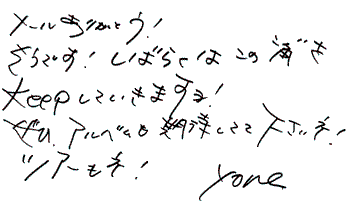 メールありがとう!
そうです! しばらくはこの濃さ
keepしていきますよ!
ぜひ、アルバムも期待してて下さいネ!
ツアーもネ!
yone